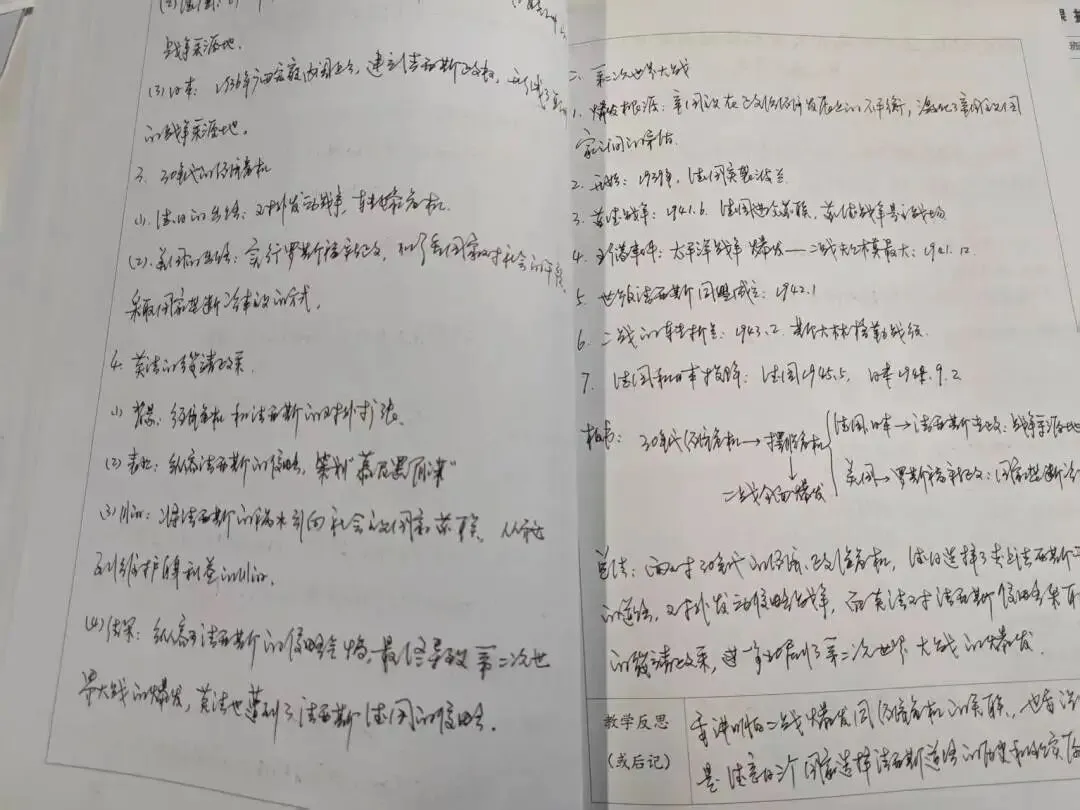 战争策源地。
(3)日本：1936年广田弘毅内阁上台，建立法西斯政权，
的战争策源地。
3、30年代的经济危机
(1)、德日的出路：对外发动战争，转嫁危机.
(2)、美国的出路：实行罗斯福新政，加强国家对社会的干预
采取国家垄断资本主义的方式.
4、英法的绥靖政策.
(1)背景：经济危机和法西斯的对外扩张.
(2)表现：纵容法西斯的侵略，策划“慕尼黑阴谋”
(3)目的：将法西斯的祸水引向社会主义国家苏联，从而达
到维护自身利益的目的.
(4)结果：纵容了法西斯的侵略气焰，最终导致第二次世
界大战的爆发，英法也遭到了法西斯德国的侵略.
二、第二次世界大战
1、爆发根源：帝国主义在政治经济发展上的不平衡，激化了帝国主义国
家之间的矛盾.
2、开始：1939年，德国突袭波兰.
3、苏德战争：1941.6. 德国进攻苏联，苏德战争是主战场
4、珍珠港事件：太平洋战争爆发——二战规模最大：1941.12
5、世界反法西斯同盟成立：1942.1
6、二战的转折点：1943.2. 斯大林格勒战役.
7、德国和日本投降：德国1945.5. 日本1945.9.2
板书：30年代经济危机→摆脱危机
德国、日本→法西斯专政：战争策源地
美国→罗斯福新政：国家垄断
二战全面爆发
总结：面对30年代的经济、政治危机，德日选择了走上法西斯
的道路，对外发动侵略战争，而英法对法西斯侵略采取
的绥靖政策，进一步加剧了第二次世界大战的爆发.
教学反思
(或后记)
要讲明白二战爆发同经济危机的关联，也要
是德意日三个国家选择法西斯道路的历史和现实